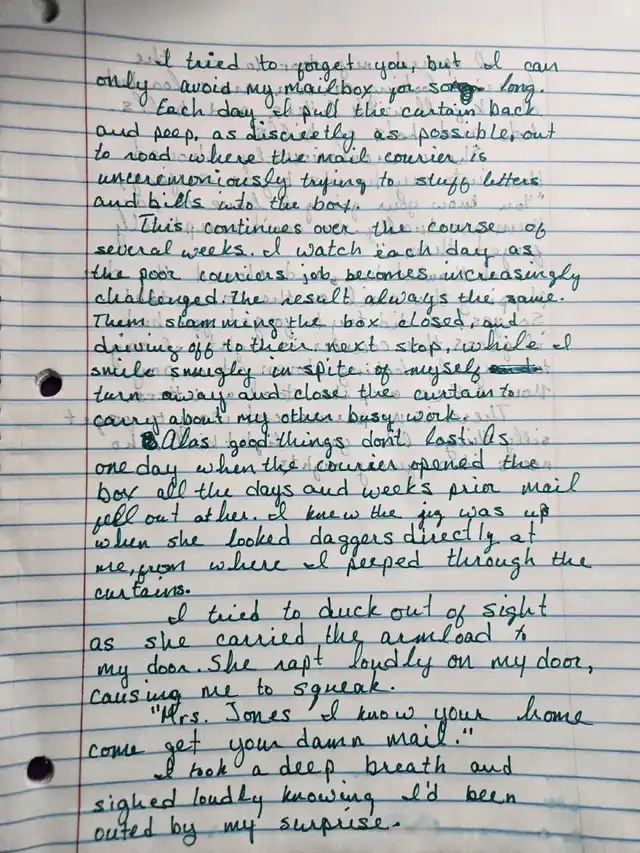 I tried to forget you, but I can
only avoid my mailbox for so long.
Each day I pull the curtain back
and peep, as discreetly as possible, out
to road where the mail courier is
unceremoniously trying to stuff letters
and bills into the box.
This continues over the course of
several weeks. I watch each day as
the poor couriers job, becomes increasingly
challenged. The result always the same.
Them slamming the box closed, and
driving off to their next stop, while I
smile smugly in spite of myself
turn away and close the curtain to
carry about my other busy work.
Alas good things don't last. As
one day when the courier opened the
box all the days and weeks prior mail
fell out at her. I knew the jig was up
when she looked daggers directly at
me, from where I peeped through the
curtains.
I tried to duck out of sight
as she carried the armload to
my door. She rapt loudly on my door,
causing me to squeak.
"Mrs. Jones I know your home
come get your damn mail."
I took a deep breath and
sighed loudly knowing I'd been
outed by my surprise.